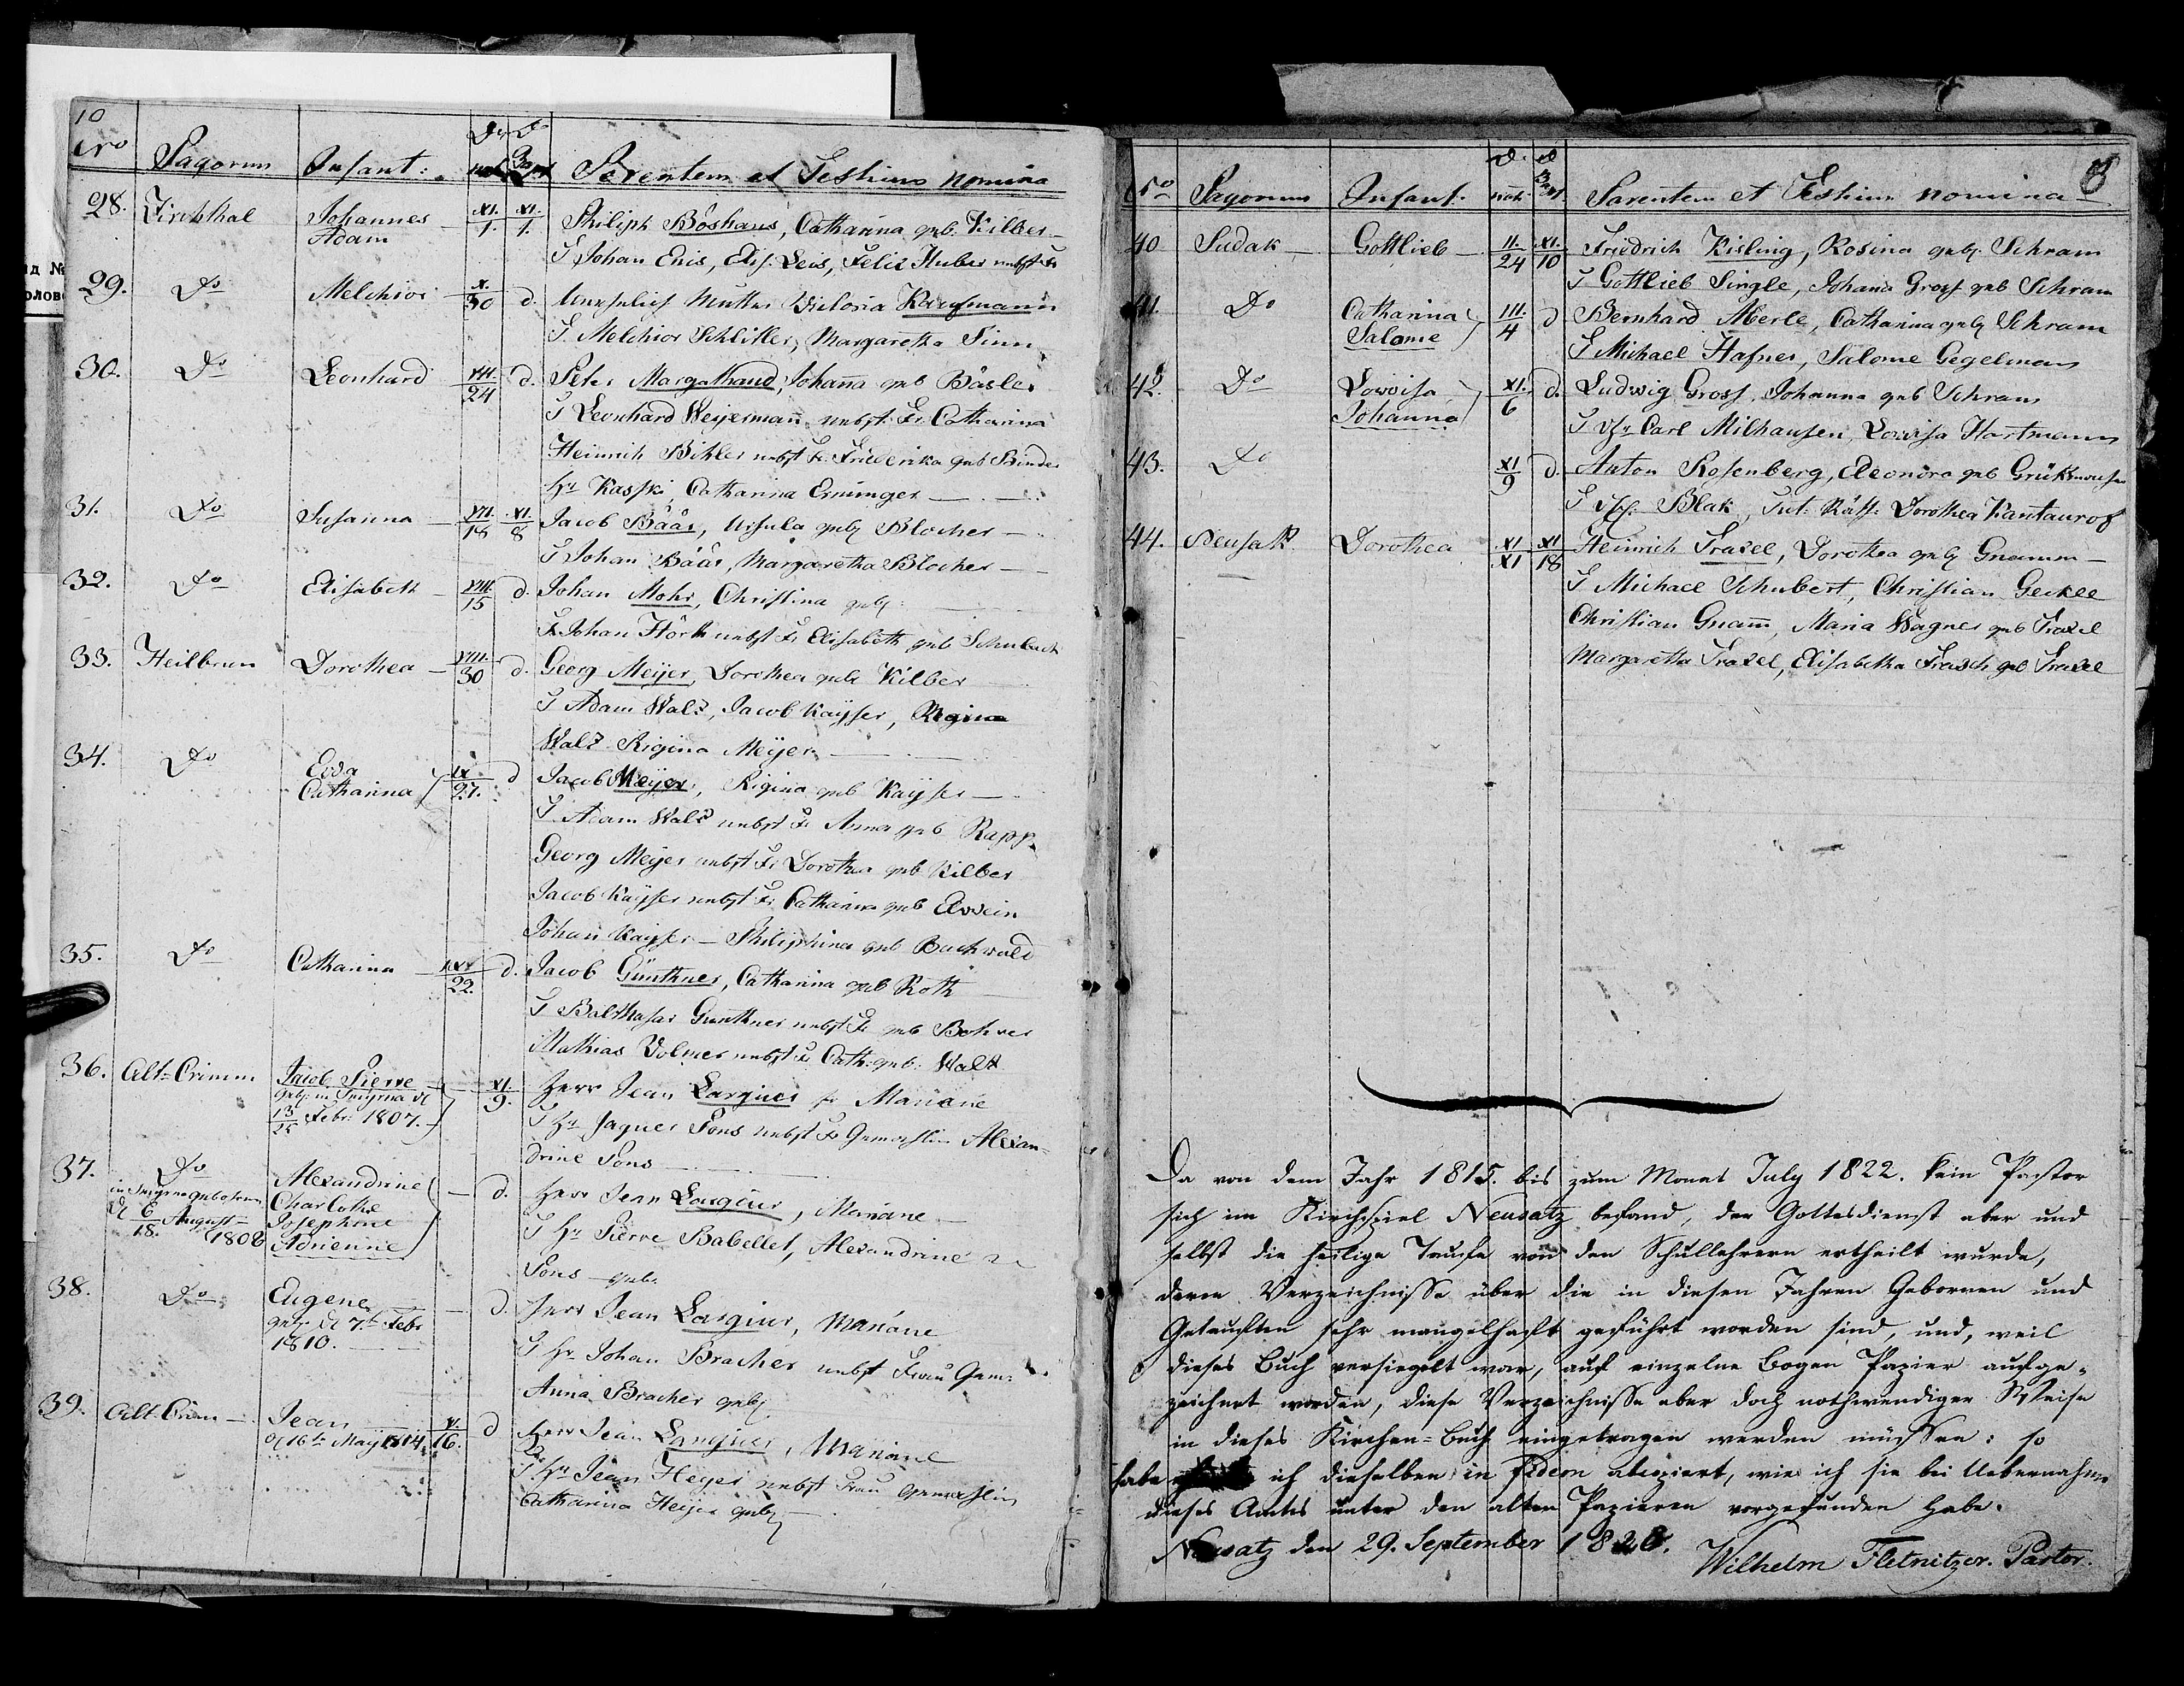 10
Nro Pagorum Infant: D. nat. D. Bapt Parentum et Testium nomina
28. Zirchthal Johannes Adam XI. 1. XI. 1. Philiph Böshans, Catharina geb: Kilber
T Johan Enis, Elis. Leis, Felix Huber nebst Fr
29. Do Melchior X. 30 d. Unehelich Mutter Victoria Kaufmann
T. Melchior Schlitter, Margaretha Sinn
30. Do Leonhard VII. 24 d. Peter Margathand, Johana geb Bäsler
T Leonhard Weyermann nebst Fr Catharina
Heinrich Bihler nebst Fr Friederika geb Binder
Hr Kasski, Catharina Erninger
31. Do Susanna VII. 18 XI. 8 Jacob Bäär, Ursula geb Blocher
T Johan Bäär, Margaretha Blocher
32. Do Elisabeth VIII. 15 d. Johan Mohr, Christina geb:
T Johan Hörth nebst Fr Elisabeth geb Schubach
33. Heilbrun Dorothea VIII. 30 d. Georg Meyer, Dorothea geb Kilber
T Adam Walz, Jacob Kayser, Regina
Walz Rigina Meyer
34. Do Eva Catharina IX. 27. d Jacob Meyer, Rigina geb Kayser
T Adam Walz nebst Fr Anna geb Rapp.
Georg Meyer nebst Fr Dorothea geb Kilber
Jacob Kayser nebst Fr Catharina geb Elwein
Johan Kayser — Philiphina geb Buchwald
35. Do Catharina 22. d. Jacob Günthner, Catharina geb Roth
T Balthasar Gunthner nebst Fr geb Bohrer
Mathias Volmer nebst Fr Cath: geb. Walz
36. Alt-Crimm Jacob Pierre XI. 9. Herr Jean Largier Fr Mariane
geb: in Smyrna d
13/25 Febr: 1807. T Hr Jaques Pons nebst Fr Gemahlin Alexan-
drine Pons
37. Do Alexandrine d. Herr Jean Largier, Mariane
in Smyrna geboren Charlotte
d 6/18. August 1808 Josephine T Hr Pierre Babellet, Alexandrine
Adrienne Pons geb.
38. Do Eugene d. Herr Jean Largier, Mariane
geb d 7t Febr
1810. T Hr Johan Bracher nebst Frau Gem:
Anna Bracher geb
39. Alt Crim Jean V. 16. d Herr Jean Largier, Mariane
d 16te May 1814 T Hr Jean Heyer nebst Frau Gemahlin
Catharina Heyer geb
No Pagorum Infant. D. nat. D Bapt. Parentum et Testium nomina
40 Sudak Gottlieb II. 24 XI. 10 Friedrich Kisling, Rosina geb. Schram
T Gottlieb Single, Johana Gross geb Schram
41. Do Catharina Salome III. 4 d Bernhard Aberle, Catharina geb Schram
T Michael Hafner, Salome Gegelman
42. Do Lowisa Johanna XI. 6 d. Ludwig Gross, Johanna geb Schram
T Hr Carl Milhausen, Lowisa Hartmann
43. Do XI 9 d. Anton Rosenberg, Eleonora geb
T Blak, Dorothea Kantaurof
44. Neusatz Dorothea XI XI XI 18 Heinrich Traxel, Dorothea geb Gnamm
T Michael Schubert, Christian Geckle
Christian Gnam, Maria Wagner geb Traxel
Margaretha Traxel, Elisabetha Frasch geb Traxel
Da von dem Jahr 1815. bis zum Monat July 1822. kein Pastor
sich im Kirchspiel Neusatz befand, der Gottesdienst aber und
selbst die heilige Taufe von den Schullehrern ertheilt wurde,
deren Verzeichnisse über die in diesen Jahren Gebornen und
Getauften sehr mangelhaft geführt worden sind, und, weil
dieses Buch versiegelt war, auf einzelne Bogen Papier aufge-
zeichnet worden, diese Verzeichnisse aber doch nothwendiger Weise
in dieses Kirchen-Buch eingetragen werden müssen: so
habe ich dieselben in fidem copiert, wie ich sie bei Uebernahme
dieses Amts unter den alten Papieren vorgefunden habe.
Neusatz den 29. September 1826. Wilhelm Fletnitzer. Pastor.